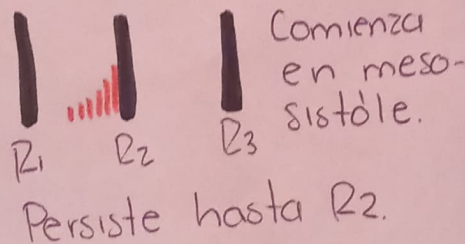 Comienza
en meso-
sistóle.
R1 R2 R3
Persiste hasta R2.